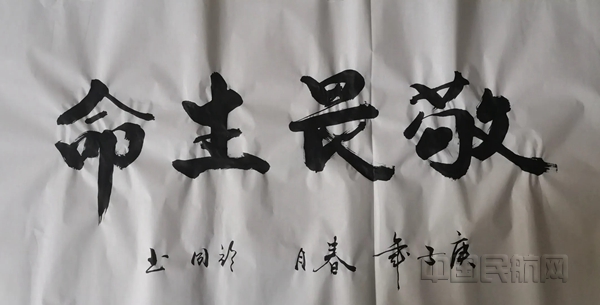 敬畏生命
庚子年春月 同书
中国民航网